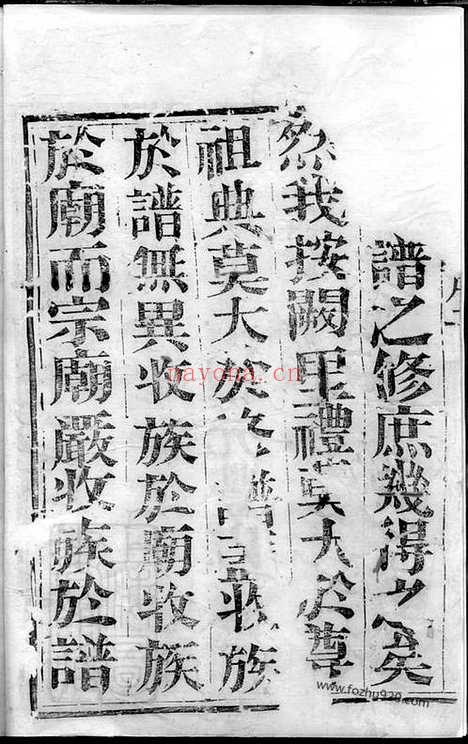 譜之修庶幾得之矣
然我按闕里禮莫大於尊
祖典莫大於譜收族
於譜無異收族於廟收族
於廟而宗廟嚴收族於譜
nayona.cn
www.fozhu920.com